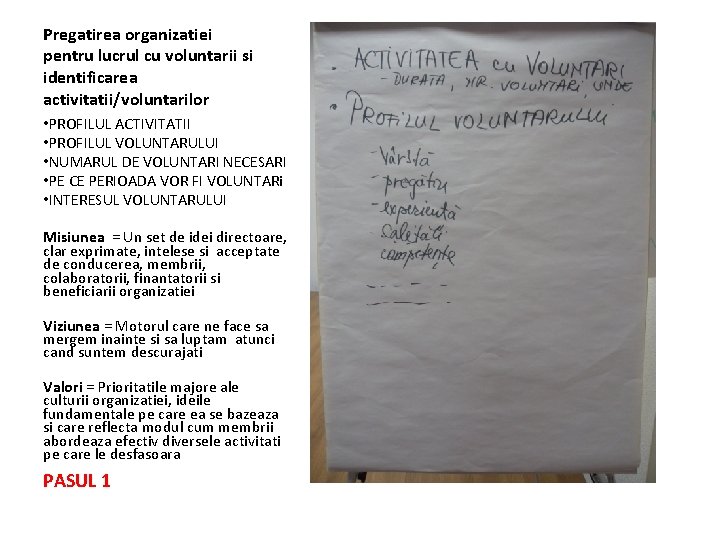 Pregatirea organizatiei
pentru lucrul cu voluntarii si
identificarea
activitatii/voluntarilor
•PROFILUL ACTIVITATII
•PROFILUL VOLUNTARULUI
•NUMARUL DE VOLUNTARI NECESARI
•PE CE PERIOADA VOR FI VOLUNTARi
•INTERESUL VOLUNTARULUI
Misiunea = Un set de idei directoare,
clar exprimate, intelese si acceptate
de conducerea, membrii,
colaboratorii, finantatorii si
beneficiarii organizatiei
Viziunea = Motorul care ne face sa
mergem inainte si sa luptam atunci
cand suntem descurajati
Valori = Prioritatile majore ale
culturii organizatiei, ideile
fundamentale pe care ea se bazeaza
si care reflecta modul cum membrii
abordeaza efectiv diversele activitati
pe care le desfasoara
PASUL 1
• ACTIVITATEA cu VOLUNTARI
- DURATA, NR. VOLUNTARI, UNDE
• PROFILUL VOLUNTARULUI
- Vârstă
- pregătire
- experiență
- calități
competențe